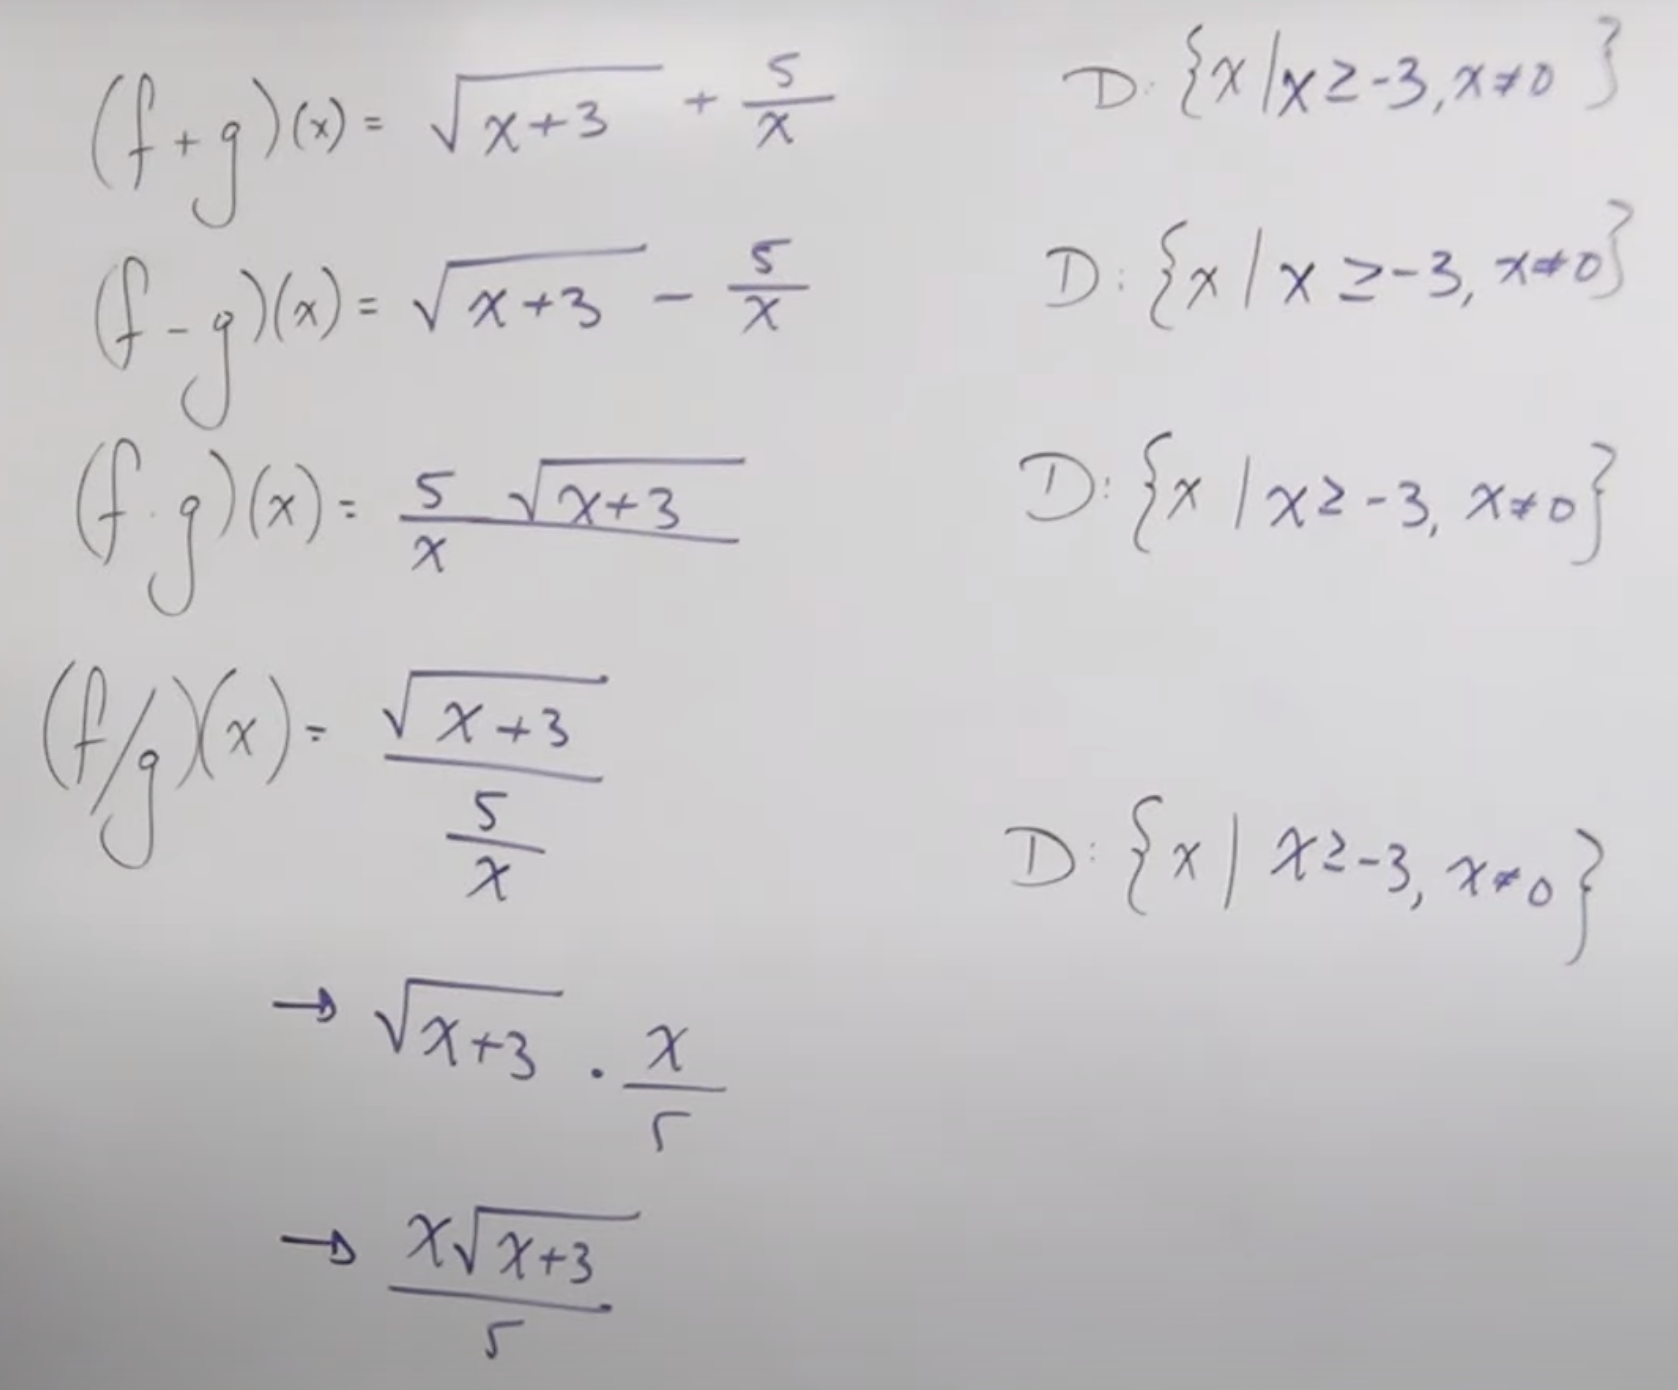 (f+g)(x) = √(x+3) + 5/x    D: {x | x ≥ -3, x ≠ 0}
(f-g)(x) = √(x+3) - 5/x    D: {x | x ≥ -3, x ≠ 0}
(f·g)(x) = 5√(x+3)/x    D: {x | x ≥ -3, x ≠ 0}
(f/g)(x) = √(x+3)/(5/x)    D: {x | x ≥ -3, x ≠ 0}
→ √(x+3) · x/5
→ x√(x+3)/5